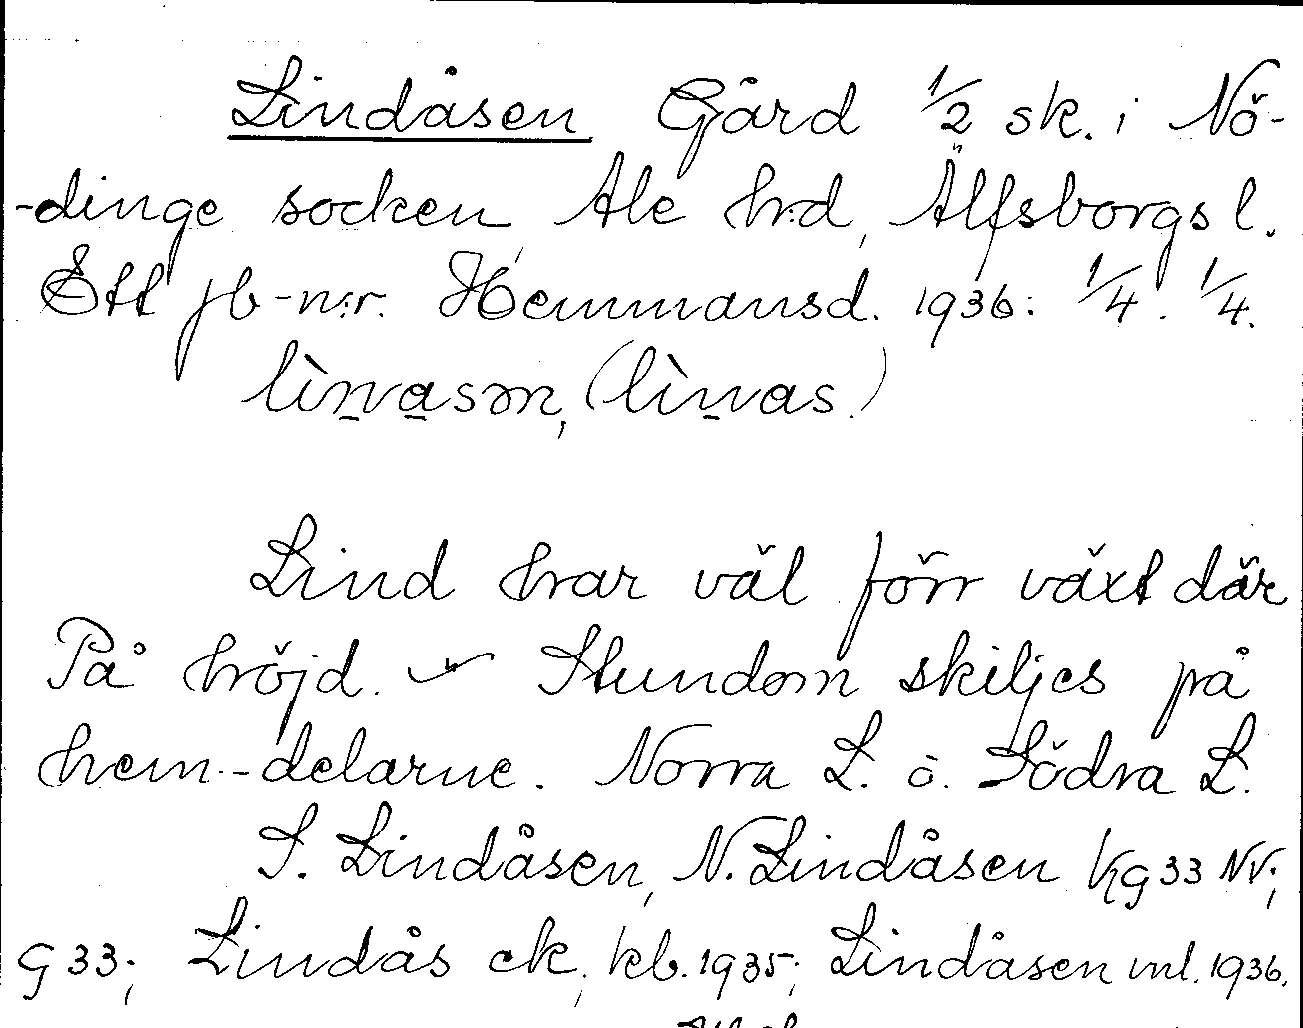 Lindåsen Gård 1/2 sk. i Nö-
-dinge socken, Ale h:d, Älfsborgs l.
Ett jb-n:r. Hemmansd. 1936: 1/4. 1/4.
lìnasm, (lìnas.)
Lind har väl förr växt där
På höjd. Stundom skiljes på
hem.-delarne. Norra L. o. Södra L.
S. Lindåsen, N. Lindåsen kg 33 NV;
g 33; Lindås ek, kb. 1935; Lindåsen ml. 1936.